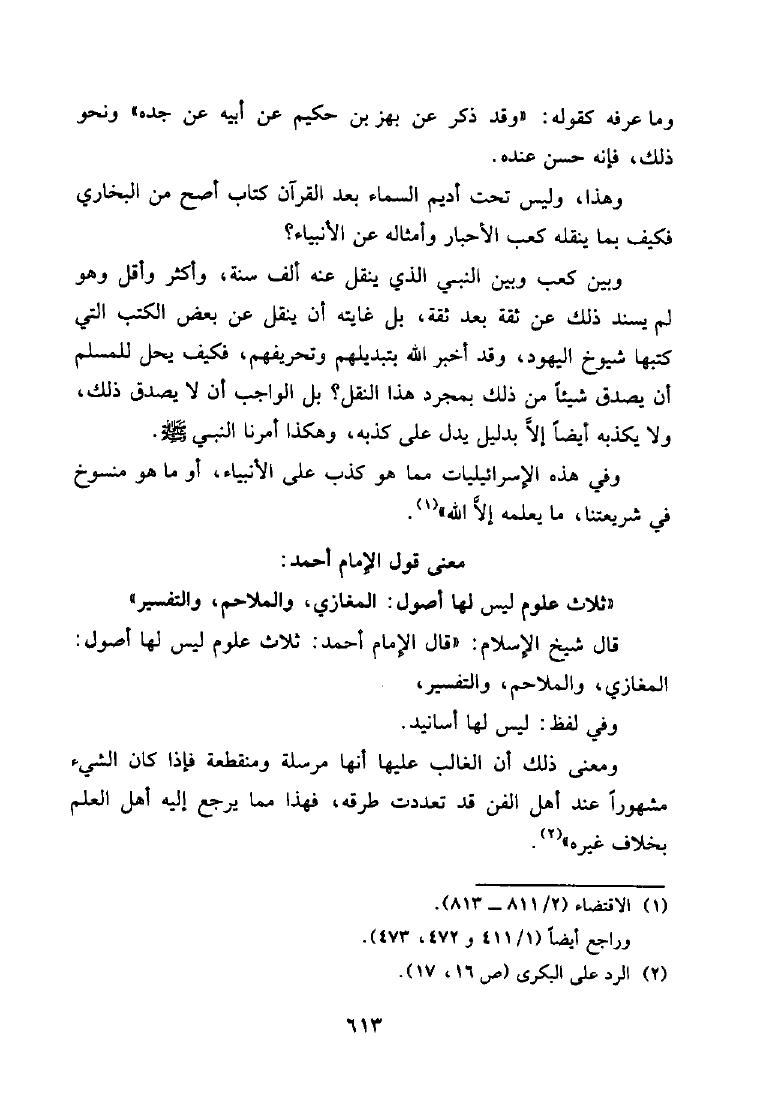 وما عرفه كقوله: «وقد ذكر عن بهز بن حكيم عن أبيه عن جده» ونحو
ذلك، فإنه حسن عنده.
وهذا، وليس تحت أديم السماء بعد القرآن كتاب أصح من البخاري
فكيف بما ينقله كعب الأحبار وأمثاله عن الأنبياء؟
وبين كعب وبين النبي الذي ينقل عنه ألف سنة، وأكثر وأقل وهو
لم يسند ذلك عن ثقة بعد ثقة، بل غايته أن ينقل عن بعض الكتب التي
كتبها شيوخ اليهود، وقد أخبر الله بتبديلهم وتحريفهم، فكيف يحل للمسلم
أن يصدق شيئاً من ذلك بمجرد هذا النقل؟ بل الواجب أن لا يصدق ذلك،
ولا يكذبه أيضاً إلاَّ بدليل يدل على كذبه، وهكذا أمرنا النبي ﷺ.
وفي هذه الإسرائيليات مما هو كذب على الأنبياء، أو ما هو منسوخ
في شريعتنا، ما يعلمه إلاَّ الله»(١).
معنى قول الإمام أحمد:
«ثلاث علوم ليس لها أصول: المغازي، والملاحم، والتفسير»
قال شيخ الإسلام: «قال الإمام أحمد: ثلاث علوم ليس لها أصول:
المغازي، والملاحم، والتفسير،
وفي لفظ: ليس لها أسانيد.
ومعنى ذلك أن الغالب عليها أنها مرسلة ومنقطعة فإذا كان الشيء
مشهوراً عند أهل الفن قد تعددت طرقه، فهذا مما يرجع إليه أهل العلم
بخلاف غيره»(٢).
(١) الاقتضاء (٢/ ٨١١ ــ ٨١٣).
وراجع أيضاً (١/ ٤١١ و ٤٧٢، ٤٧٣).
(٢) الرد على البكرى (ص ١٦، ١٧).
٦١٣